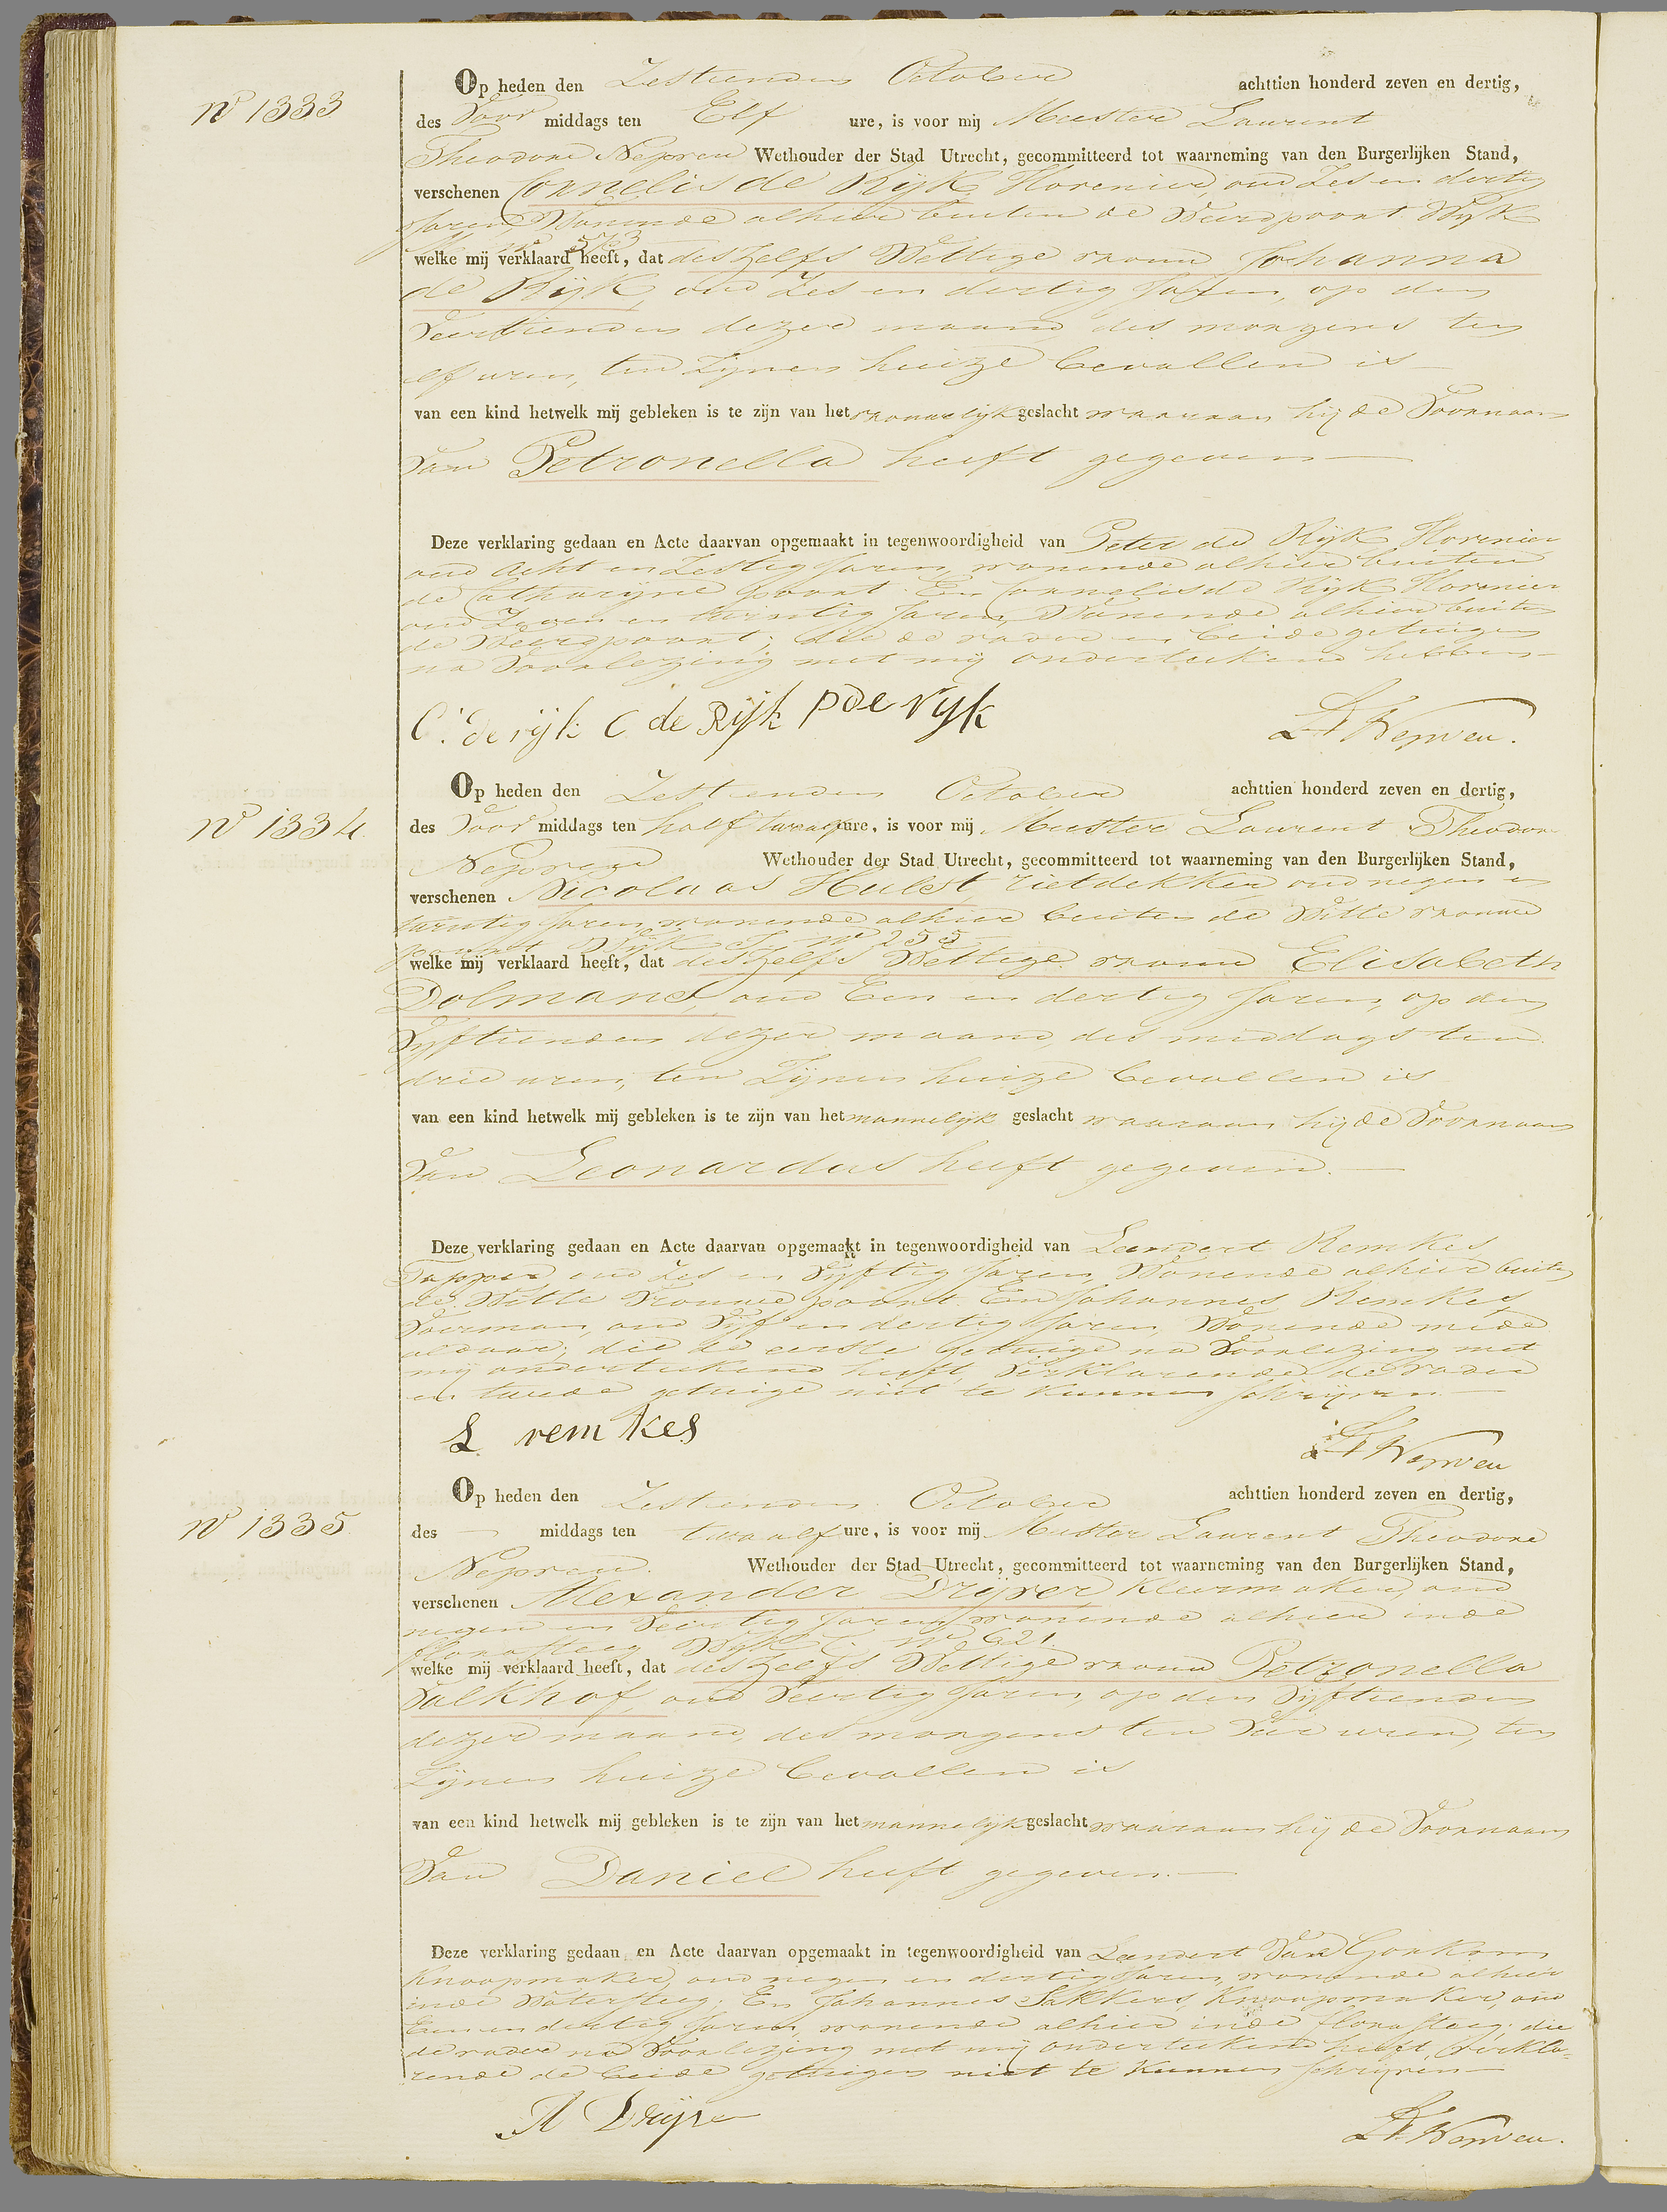 Nº 1333
Op heden den Zestienden October achttien honderd zeven en dertig,
des Voor middags ten Elf ure, is voor mij Meester Laurent
Theodore Nepveu Wethouder der Stad Utrecht, gecommitteerd tot waarneming van den Burgerlijken Stand,
verschenen Cornelis de Rijk, Hovenier, oud Zes en dertig
Jaren, Wonende alhier buiten de Weerdpoort Wijk
nº 573
welke mij verklaard heeft, dat deszelfs Wettige vrouw Johanna
de Rijk, oud Zes en dertig Jaren, op den
Veertienden dezer maand, des morgens ten
elf uren, ten Zijnen huize bevallen is
van een kind hetwelk mij gebleken is te zijn van het vrouwelijk geslacht waaraan hij de Voornaam
Van Petronella heeft gegeven
Deze verklaring gedaan en Acte daarvan opgemaakt in tegenwoordigheid van Peter de Rijk Hovenier
oud Acht en Zestig Jaren, wonende alhier buiten
de Catharijne poort. En Cornelis de Rijk Hovenier
oud Zeven en twintig Jaren, Wonende alhier buiten
de Weerdpoort; die de vader en beide getuigen
na Voorlezing met mij onderteekend hebben
C. de rijk C de Rijk P de rijk LT Nepveu.
Nº 1334
Op heden den Zestienden October achttien honderd zeven en dertig,
des Voor middags ten half twaalf ure, is voor mij Meester Laurent Theodore
Nepveu Wethouder der Stad Utrecht, gecommitteerd tot waarneming van den Burgerlijken Stand,
verschenen Nicolaas Hulst, rietdekker, oud negen en
twintig Jaren, wonende alhier buiten de Witte vrouwe
poort Wijk nº 255
welke mij verklaard heeft, dat deszelfs Wettige vrouw Elisabeth
Dolmans, oud Een en dertig Jaren, op den
Vijftienden dezer maand, des middags ten
drie uren, ten Zijnen huize bevallen is
van een kind hetwelk mij gebleken is te zijn van het mannelijk geslacht waaraan hij de Voornaam
Van Leonardus heeft gegeven.
Deze verklaring gedaan en Acte daarvan opgemaakt in tegenwoordigheid van Leendert Remkes
Tapper, oud Zes en Vijftig Jaren, Wonende alhier buiten
de Witte Vrouwe poort. En Johannes Remkes
Voerman, oud Vijf en dertig Jaren, Wonende mede
aldaar; die de eerste getuige na Voorlezing met
mij onderteekend heeft, Verklarende de Vader
en twede getuige niet te kunnen schrijven.
L remkes LT Nepveu
Nº 1335
Op heden den Zestienden October achttien honderd zeven en dertig,
des — middags ten twaalf ure, is voor mij Meester Laurent Theodore
Nepveu. Wethouder der Stad Utrecht, gecommitteerd tot waarneming van den Burgerlijken Stand,
verschenen Alexander Drijver, kleermaker, oud
negen en Veertig Jaren, wonende alhier inde
flora steeg Wijk C. nº 621.
welke mij verklaard heeft, dat deszelfs Wettige vrouw Petronella
Valkhof, oud Veertig Jaren, op den Vijftienden
dezer maand, des morgens ten Vier uren, ten
Zijnen huize bevallen is
van een kind hetwelk mij gebleken is te zijn van het mannelijk geslacht waaraan hij de Voornaam
Van Daniel heeft gegeven.
Deze verklaring gedaan en Acte daarvan opgemaakt in tegenwoordigheid van Leendert Van Gorkom
Knoopmaker, oud negen en dertig Jaren, wonende alhier
inde Watersteeg; En Johannes Sakkers, Knoopmaker, oud
Een en dertig Jaren, wonende alhier inde flora steeg; die
de vader na Voorlezing met mij onderteekend heeft, Verkla-
rende de beide getuigen niet te kunnen schrijven
A Drijver LT Nepveu.